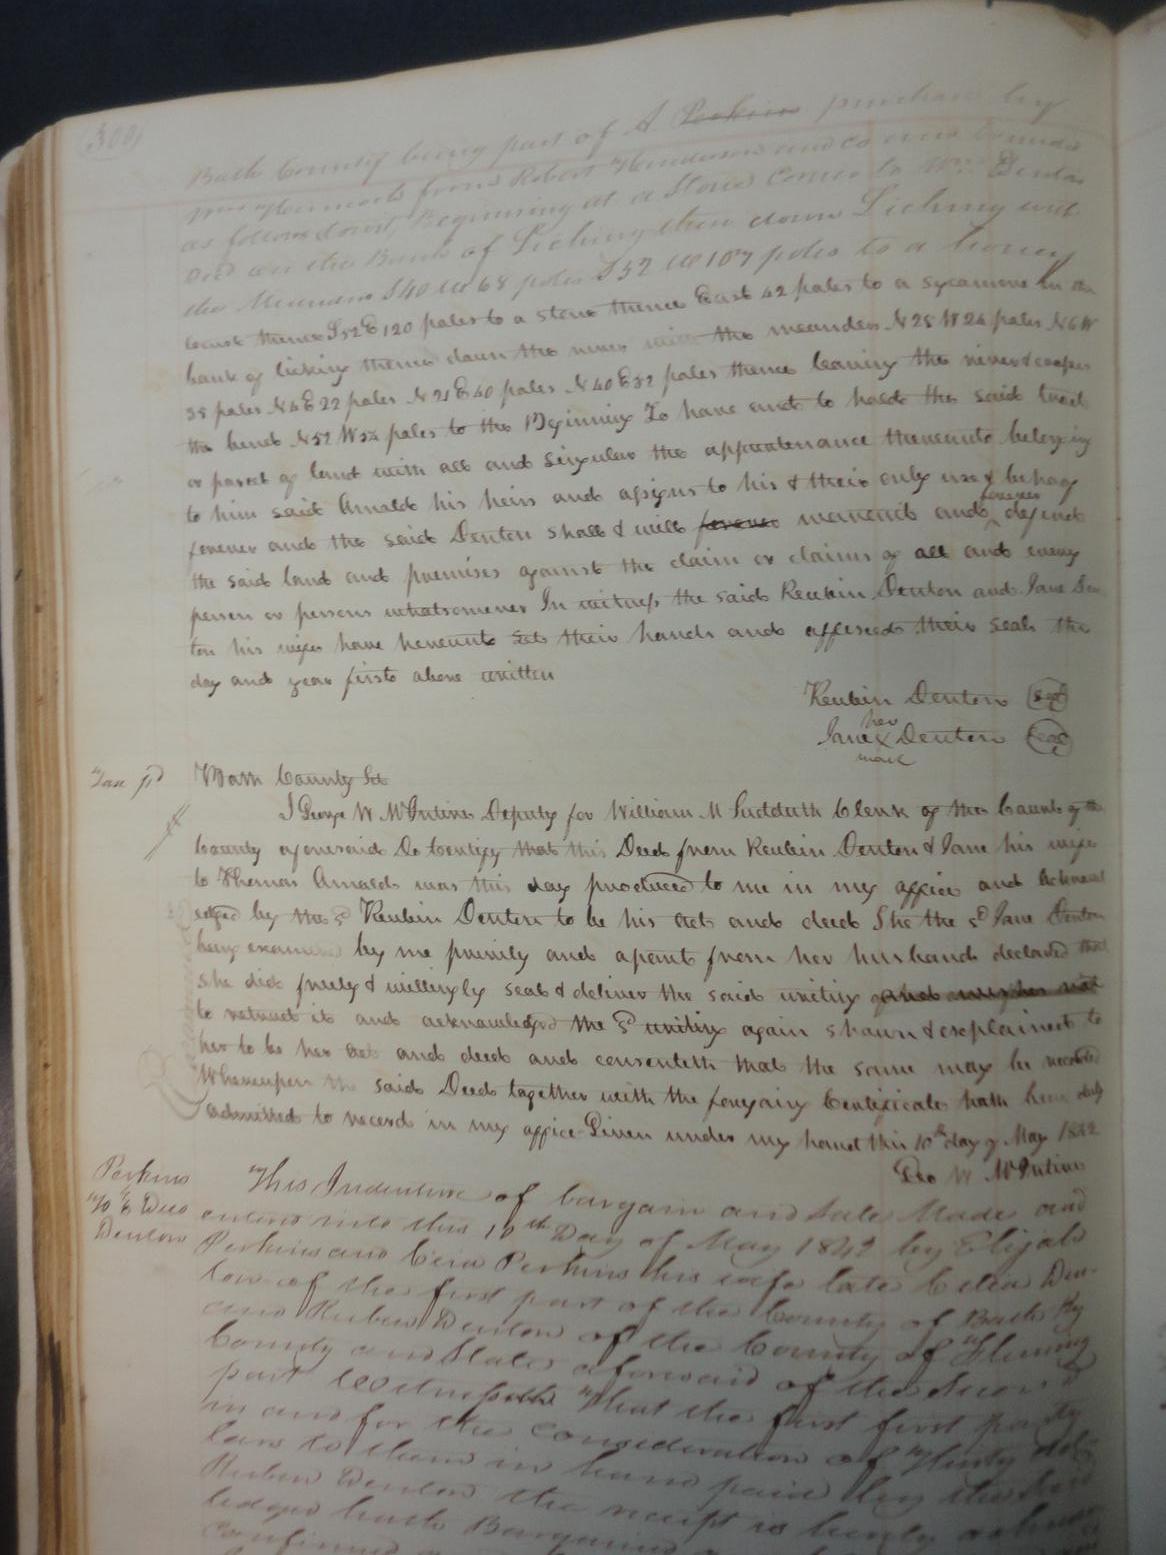 300
Bath County being part of A Perkins purchase by
Wm from Robert Henderson and Co and bounded
as follows towit, Beginning at a Stone Corner to Wm Denton
and on the Bank of Licking then down Licking with
the Meanders S40 W 68 poles S52 W 107 poles to a honey
locust thence S52 E 120 poles to a stone thence East 42 poles to a sycamore in the
bank of licking thence down the river with the meanders N25 W 24 poles N6W
35 poles N4E 22 poles N21E 40 poles N40E 32 poles thence leaving the river &
the bend N52 W 52 poles to the Beginning To have and to hold the said tract
or parcel of land with all and singular the appurtenance thereunto belonging
to him said Arnald his heirs and assigns to his & their only use & behoof
forever and the said Denton shall & will forever warrant and forever defend
the said land and premises against the claim or claims of all and every
person or persons whatsomever In witness the said Reubin Denton and Jane Den
ton his wife have hereunto set their hands and affixed their seals the
day and year first above written
Reubin Denton seal
Jane her X mark Denton seal
Tax pd
Bath County Sct
I George W McIntire Deputy for William M Sudduth Clerk of the Court of the
County aforesaid Do Certify that this Deed from Reubin Denton & Jane his wife
to Thomas Arnald was this day produced to me in my office and acknowl
edged by the sd Reubin Denton to be his act and deed She the sd Jane Denton
being examined by me privily and apart from her husband declared that
she did freely & willingly seal & deliver the said writing and wishes not
to retract it and acknowledged the sd writing again shown & explained to
her to be her act and deed and consenteth that the same may be recorded
Whereupon the said Deed together with the foregoing Certificate hath been duly
admitted to record in my office Given under my hand this 10th day of May 1842
Geo W McIntire
Perkins
To } Deed
Denton
This Indenture of bargain and Sale Made and
entered into this 10th Day of May 1842 by Elijah
Perkins and Perkins his wife late Den-
ton of the first part of the County of Bath Ky
and Reuben Denton of the County of Fleming
County and State aforesaid of the Second
part Witnesseth That the first first party
in and for the Consideration of Thirty dol-
lars to them in hand paid by the said
Reuben Denton the receipt is hereby acknow
ledged hath Bargained
Confirmed